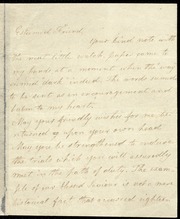 Esteemed Friend
Your kind note with
the neat little watch paper came to
my hand at a moment when the way
seemed dark indeed. The words seemed
to be sent as an encouragement and
balm to my heart.
May your friendly wishes for me be
returned upon your own head.
May you be strengthened to endure
the trials which you will assuredly
meet in the path of duty. The exam
ple of our blessed Saviour is not a mere
historical fact that occurred eighteen